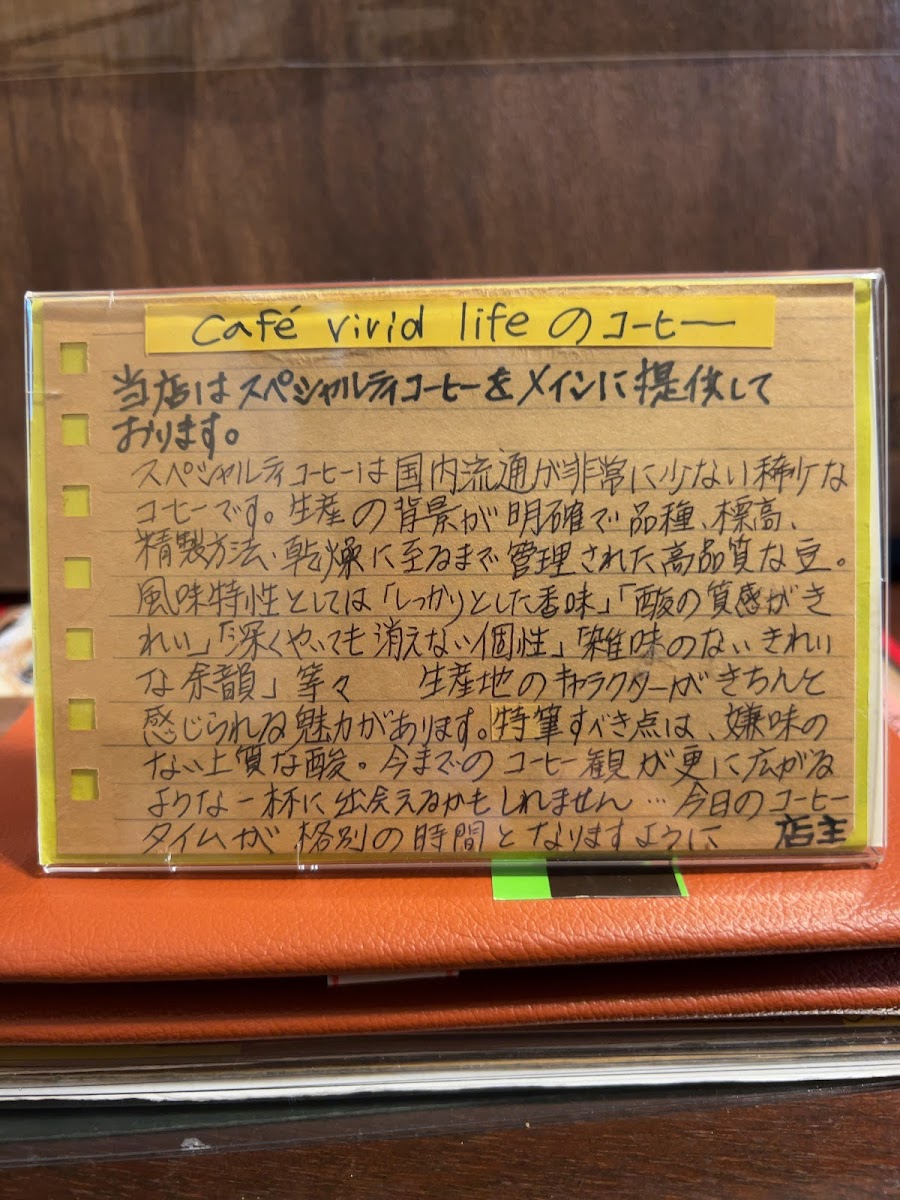 café vivid life のコーヒー
当店はスペシャルティコーヒーをメインに提供して
おります。
スペシャルティコーヒーは国内流通が非常に少ない稀少な
コーヒーです。生産の背景が明確で品種、標高、
精製方法、乾燥に至るまで管理された高品質な豆。
風味特性としては「しっかりとした香味」「酸の質感がき
れい」「深くやいても消えない個性」「雑味のないきれい
な余韻」等々 生産地のキャラクターがきちんと
感じられる魅力があります。特筆すべき点は、嫌味の
ない上質な酸。今までのコーヒー観が更に広がる
ような一杯に出会えるかもしれません… 今日のコーヒー
タイムが格別の時間となりますように 店主